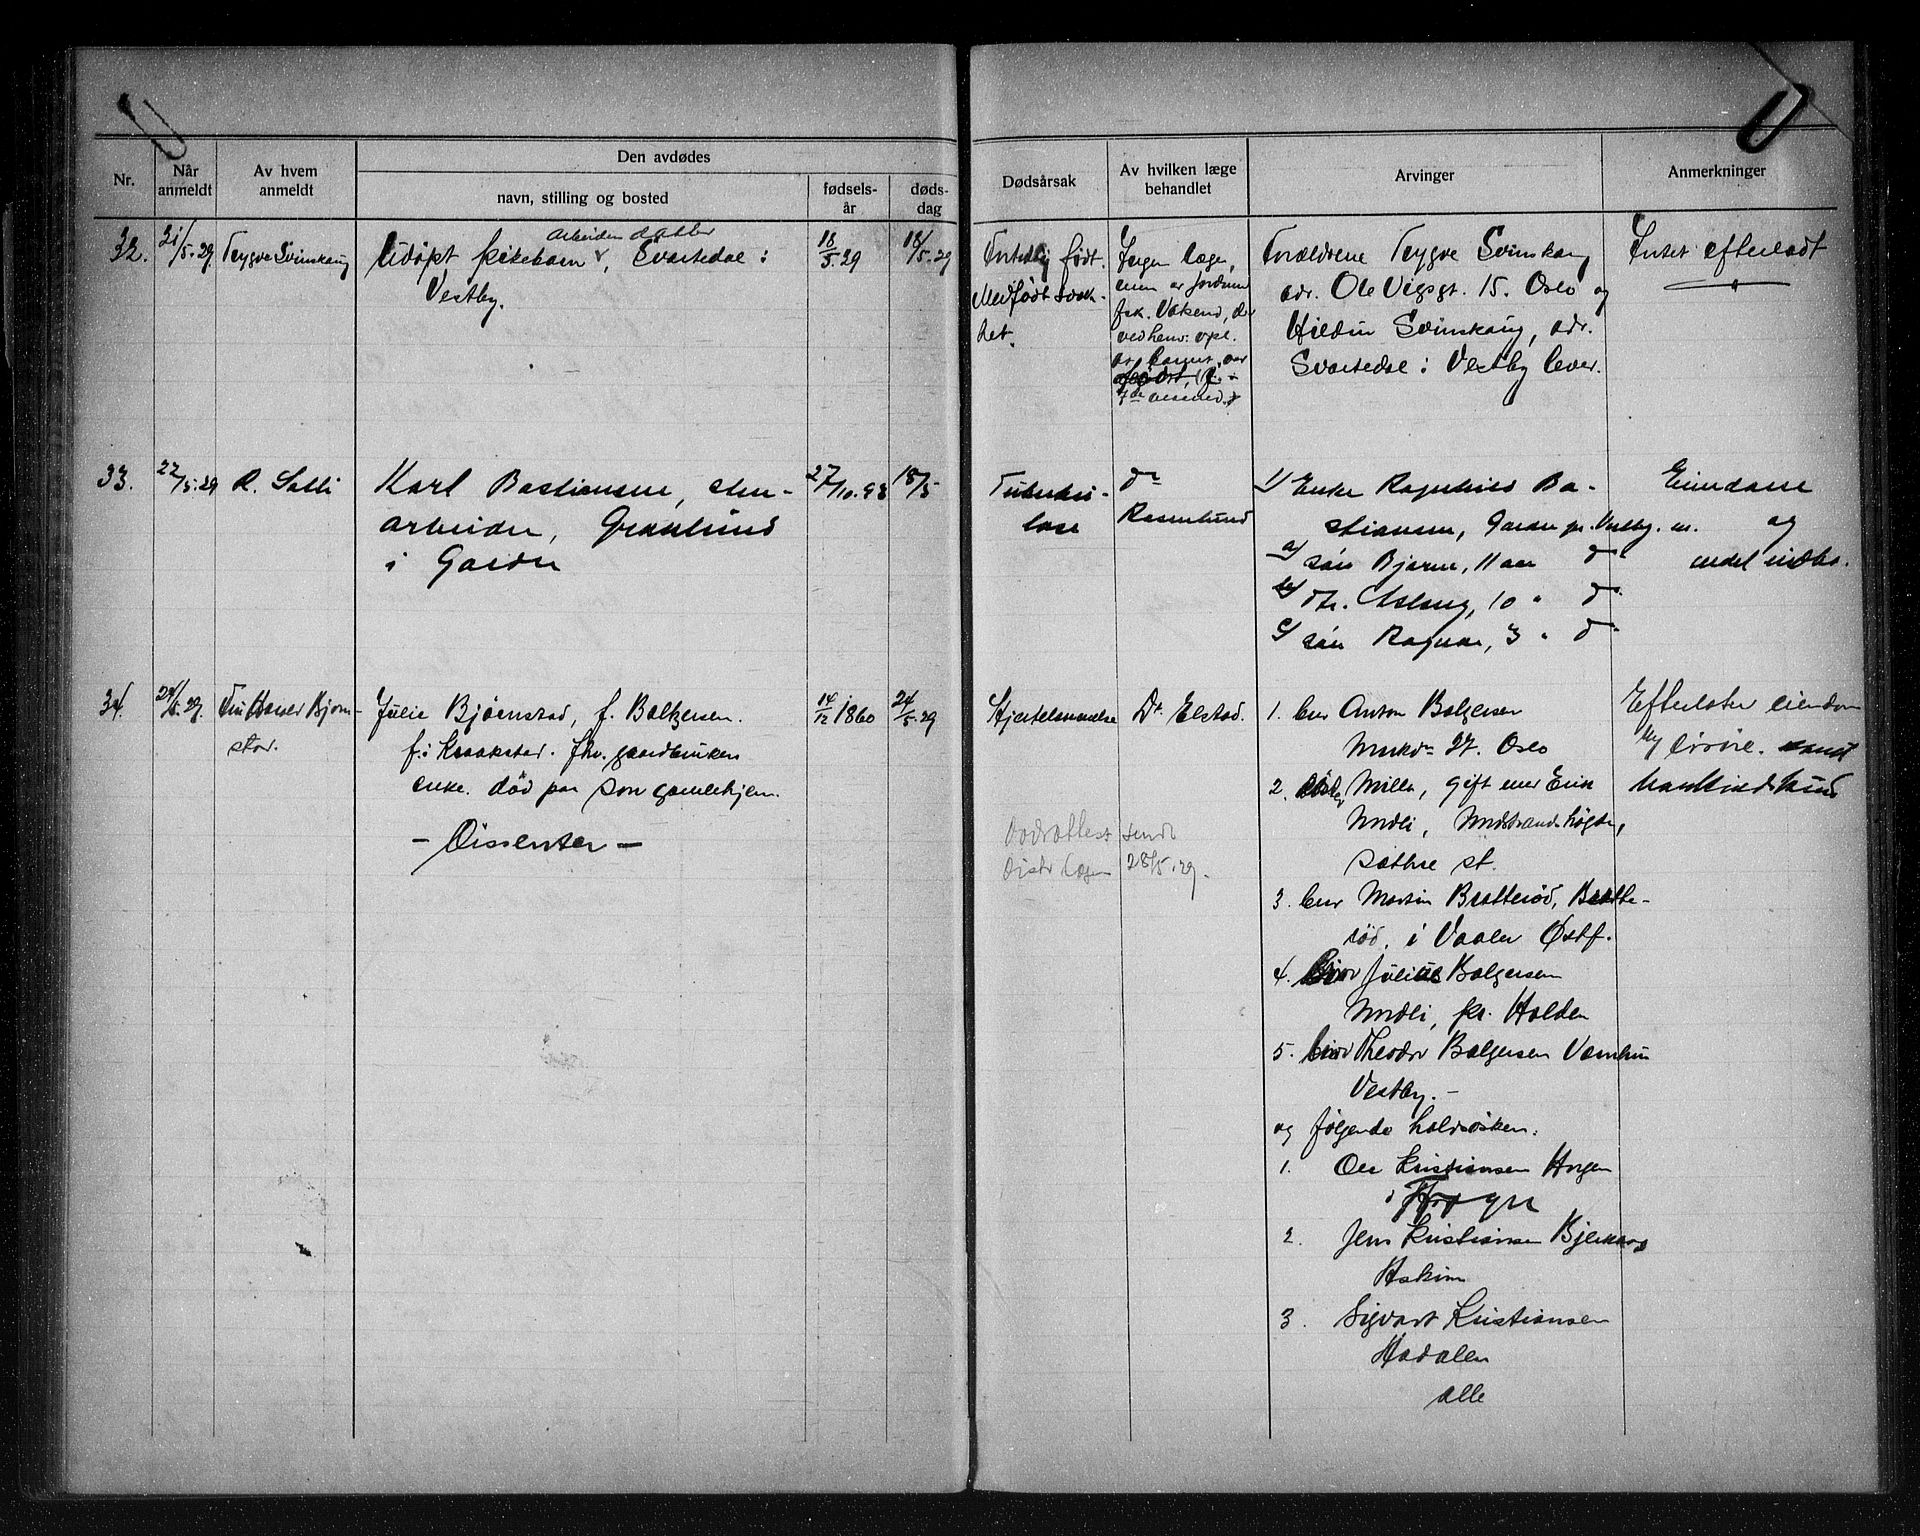 Nr.
Når anmeldt
Av hvem anmeldt
Den avdødes
navn, stilling og bosted
fødsels-år
døds-dag
Dødsårsak
Av hvilken læge behandlet
Arvinger
Anmerkninger
32.
21/5.29
Trygve Svinskaug
Arbeider datter
Udøpt pikebarn, Svartedal i
Vestby.
18/5.29
18/5.29
født.
Medfødt svak-
het.
Ingen læge,
men er jordmor
frk. Vakend, der
ved henv. opl.
at barnet var
Forældrene Trygve Svinskaug
adr. Ole Vigsgt. 15. Oslo og
Svinskaug, adr.
Svartedal i Vestby lever.
Intet efterladt
33.
22/5.29
R. Solli
Karl Bastiansen, sten-
arbeider, Granlund
i Garder
27/10.93
18/5
Tuberku-
lose
dr
Rosenlund
1) Enke Ragnhild Ba-
stiansen, Garder pr. Vestby. m.
a) søn Bjarne, 11 aar d
b) dtr. Aslaug, 10 " d
c) søn Ragnar, 3 " d
Eiendom
og
endel indbo.
34.
24/5.29.
Bjørn-
stad.
Julie Bjørnstad, f. Bolgersen.
f. i Kraakstad. fhv. gaardbruker
enke. død paa Son gamlehjem.
- Dissenter -
14/12 1860
24/5.29
Hjertelammelse
Dr. Elstad.
Dødsattest sendt
Distr lægen 28/5.29.
1. bror Anton Bolgersen
27. Oslo
2. søster Milla, gift med Erik
Mødli,
Sætre st.
3. bror Martin Bratterød, Bratte-
rød, i Vaaler Østf.
4. bror Julius Bolgersen
Mødli, pr. Halden
5. bror Theodor Bolgersen
Vestby. -
og følgende halvsøsken:
1. Ole Kristiansen Horgen
i Frogn
2. Jens Kristiansen
Askim
3. Sigvart Kristiansen
Hadalen
alle
Efterlater eiendom
og løsøre. samt